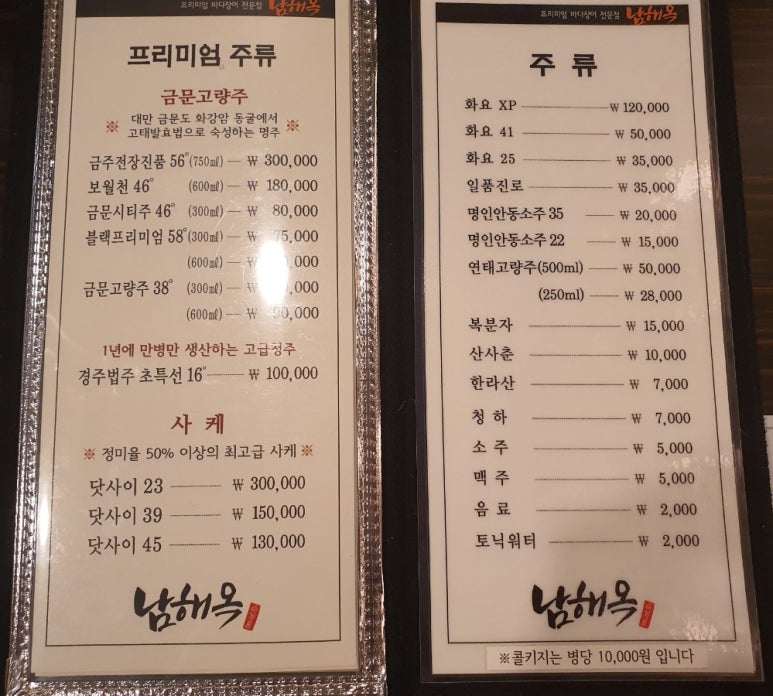 프리미엄 바다장어 전문점 남해옥
프리미엄 주류
금문고량주
※ 대만 금문도 화강암 동굴에서
고태발효법으로 숙성하는 명주 ※
금주전장진품 56°(750㎖) ₩ 300,000
보월천 46° (600㎖) ₩ 180,000
금문시티주 46° (300㎖) ₩ 80,000
블랙프리미엄 58°(300㎖) ₩ 75,000
(600㎖) ₩
금문고량주 38° (300㎖) ₩
(600㎖) ₩ 90,000
1년에 만병만 생산하는 고급청주
경주법주 초특선 16° ₩ 100,000
사 케
※ 정미율 50% 이상의 최고급 사케 ※
닷사이 23 ₩ 300,000
닷사이 39 ₩ 150,000
닷사이 45 ₩ 130,000
남해옥
프리미엄 바다장어 전문점 남해옥
주 류
화요 XP ₩ 120,000
화요 41 ₩ 50,000
화요 25 ₩ 35,000
일품진로 ₩ 35,000
명인안동소주 35 ₩ 20,000
명인안동소주 22 ₩ 15,000
연태고량주(500ml) ₩ 50,000
(250ml) ₩ 28,000
복분자 ₩ 15,000
산사춘 ₩ 10,000
한라산 ₩ 7,000
청 하 ₩ 7,000
소 주 ₩ 5,000
맥 주 ₩ 5,000
음 료 ₩ 2,000
토닉워터 ₩ 2,000
남해옥
※콜키지는 병당 10,000원 입니다